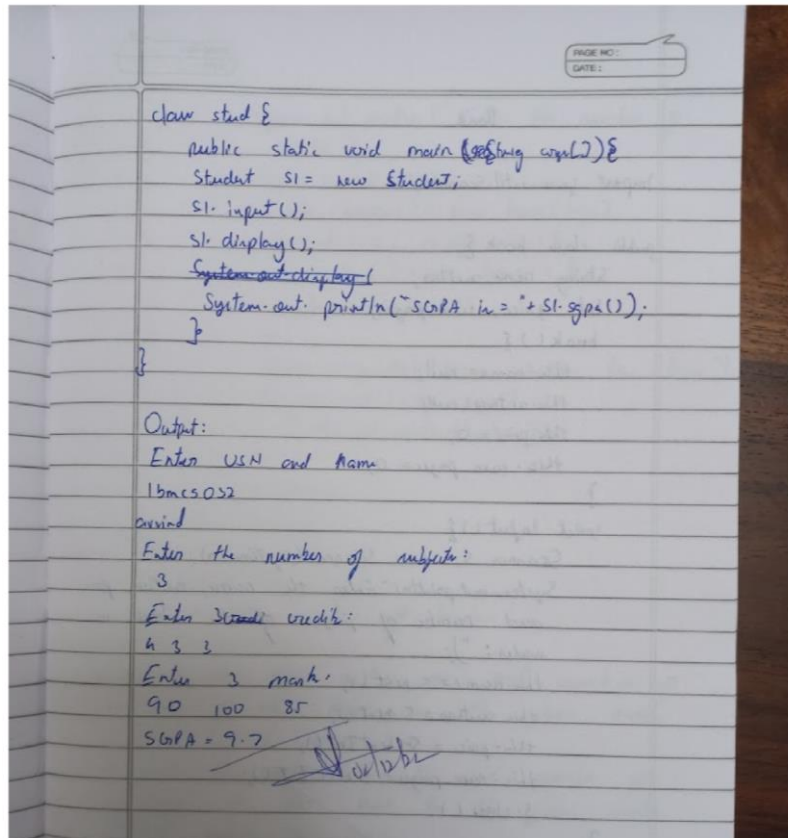 PAGE NO :
DATE :
class stud {
public static void main (String args[]) {
Student S1 = new Student;
S1. input();
S1. display();
System.out.display(
System.out. println("SGPA is = "+ S1.sgpa());
}
}
Output:
Enter USN and Name
1bmcs032
arvind
Enter the number of subjects:
3
Enter 3 credits:
4 3 3
Enter 3 mark.
90 100 85
SGPA = 9.7